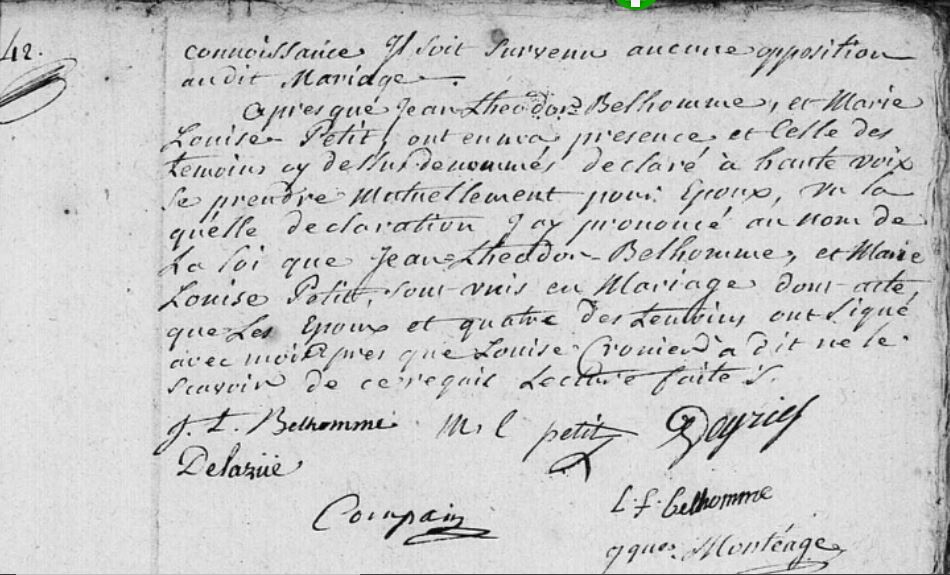 42.
connoissance Il soit survenu aucune opposition
audit Mariage.
Apres que Jean Theodore Belhomme, et Marie
Louise Petit, ont en ma presence, et Celle des
temoins cy dessus denommés declaré à haute voix
se prendre Mutuellement pour Epoux, vu la
quélle declaration J'ay prononcé au nom de
La loi que Jean Theodore Belhomme, et Marie
Louise Petit, sont unis en Mariage dont acte,
que Les Epoux et quatre des temoins ont signé
avec moi Apres que Louise a dit ne le
scavoir de ce requis Lecture faite
J. T. Belhomme M. l petit
Delazüe
Compain L. f. belhomme
Montéage